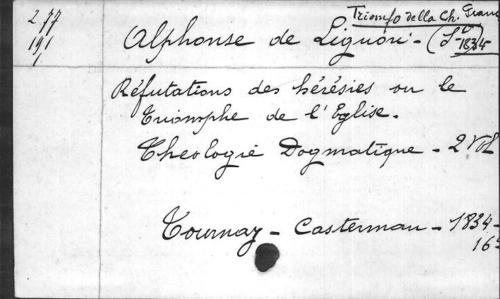 277
191
1
Triomfo della Ch.
Alphonse de Liguori - (S - 1834
Réfutations des hérésies ou le
Triomphe de l'Eglise.
Théologie Dogmatique - 2 Vol
Tournay - Casterman - 1834 -
16°